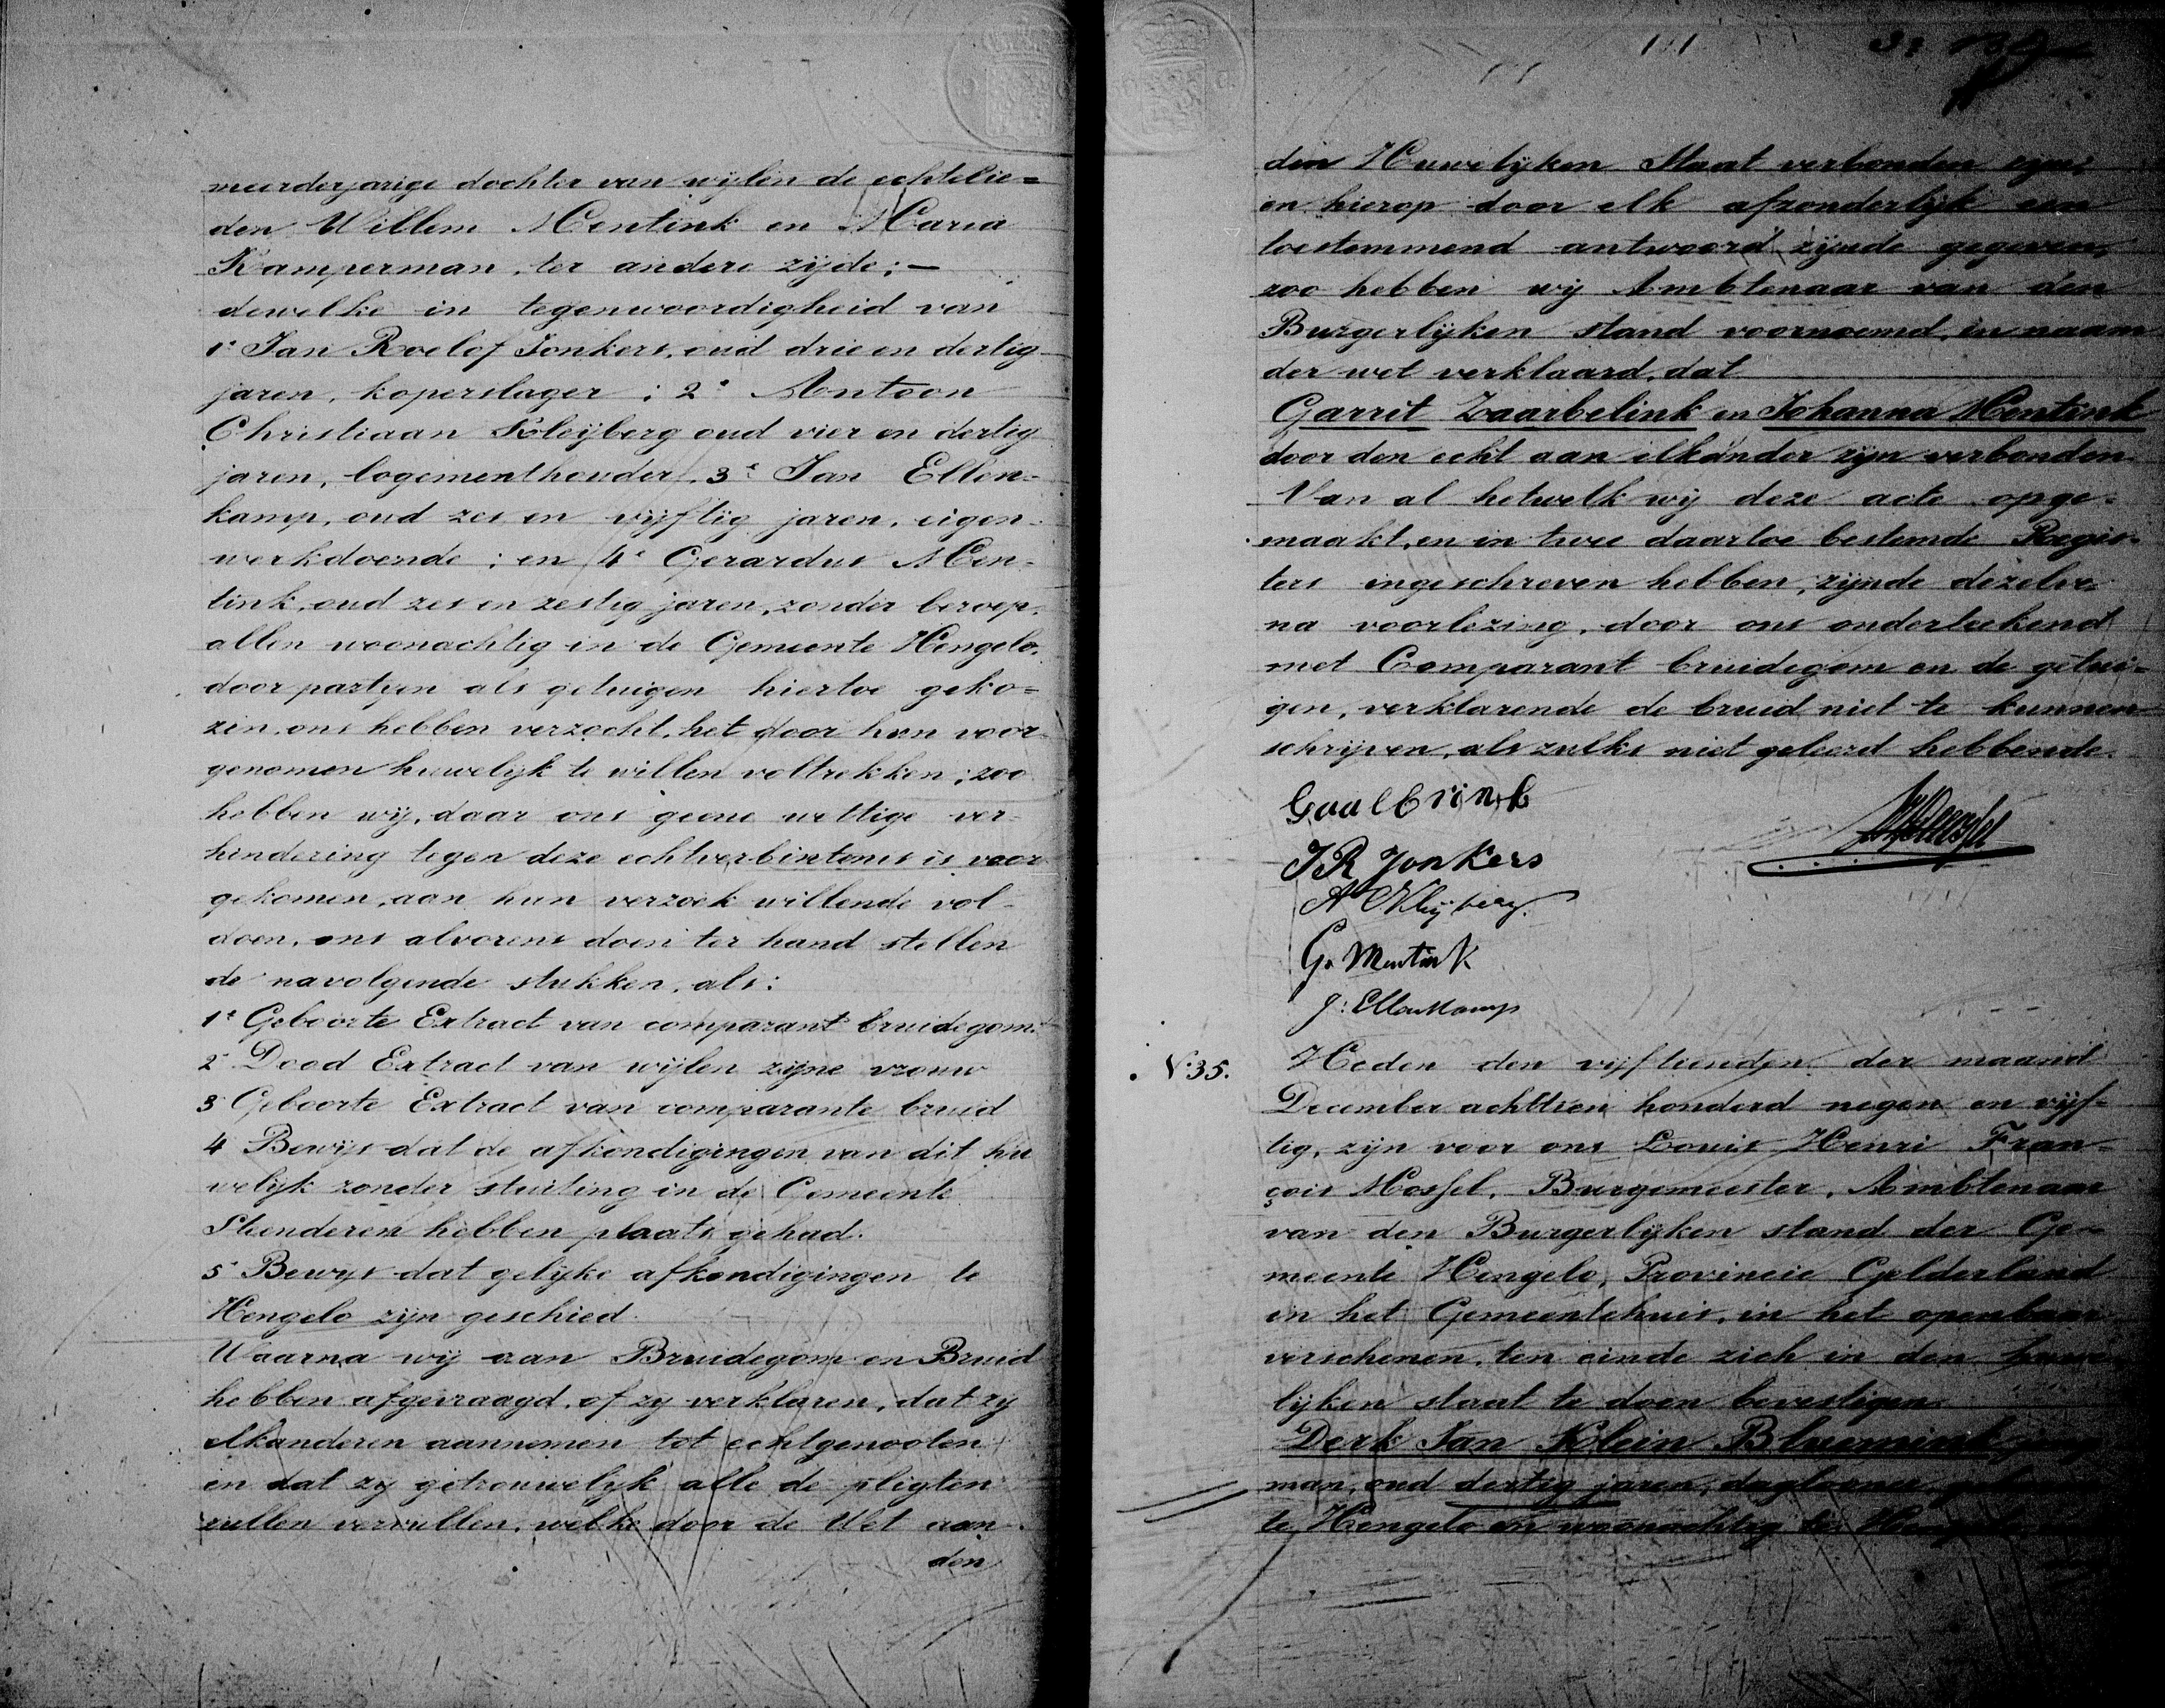 meerderjarige dochter van wijlen de echtelie=
den Willem Mentink en Maria
Kamperman, ter andere zijde; —
dewelke in tegenwoordigheid van
1e Jan Roelof Jonkers, oud drie en dertig
jaren, koperslager; 2e Antoon
Christiaan Kleijberg oud vier en dertig
jaren, logementhouder, 3e Jan Ellen-
kamp, oud zes en vijftig jaren, eigen-
werkdoende; en 4e Gerardus Men-
tink, oud zes en zestig jaren, zonder beroep,
allen woonachtig in de Gemeente Hengelo,
door partyen als getuigen hiertoe geko=
zen, ons hebben verzocht, het door hun voor-
genomen huwelijk te willen voltrekken; zoo
hebben wij, daar ons geene wettige ver-
hindering tegen deze echtverbintenis is voor
gekomen, aan hun verzoek willende vol-
doen, ons alvorens doen ter hand stellen
de navolgende stukken, als:
1e Geboorte Extract van comparant bruidegom.
2e Dood Extract van wijlen zijne vrouw
3e Geboorte Extract van comparante bruid
4 Bewijs dat de afkondigingen van dit hu
welijk zonder stuiting in de Gemeente
Steenderen hebben plaats gehad.
5e Bewijs dat gelijke afkondigingen te
Hengelo zijn geschied.
Waarna wij aan Bruidegom en Bruid
hebben afgevraagd, of zy verklaren, dat zy
elkanderen aannemen tot echtgenooten
en dat zy getrouwelyk alle de pligten
zullen vervullen, welke door de Wet aan
den
den Huwelijken Staat verbonden zyn;
en hierop door elk afzonderlijk een
toestemmend antwoord zijnde gegeven,
zoo hebben wij Ambtenaar van den
Burgerlijken stand voornoemd, in naam
der wet verklaard, dat
Garrit Zaarbelink en Johanna Mentink
door den echt aan elkander zijn verbonden.
Van al hetwelk wij deze acte opge-
maakt, en in twee daartoe bestemde Regis-
ters ingeschreven hebben, zijnde dezelve
na voorlezing, door ons onderteekend
met Comparant bruidegom en de getui-
gen, verklarende de bruid niet te kunnen
schrijven, als zulks niet geleerd hebbende.
JR Jonkers
A C Kleijberg.
G. Mentink
J: Ellenkamp
No 35.
Heden den vijftienden der maand
December achttien honderd negen en vijf-
tig, zijn voor ons Louis Henri Fran-
çois Mossel, Burgemeester, Ambtenaar
van den Burgerlijken stand der Ge-
meente Hengelo, Provincie Gelderland
in het Gemeentehuis, in het openbaar
verschenen, ten einde zich in den huwe
lijken staat te doen bevestigen.
Derk Jan Klein Bluemink
man, oud dertig jaren, daglooner
te Hengelo en woonachtig te Hengelo